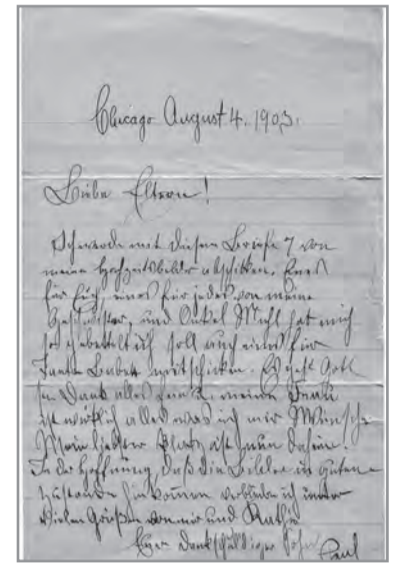 Chicago August 4. 1903.
Liebe Eltern!
Ich werde mit diesem Briefe 7 von
meine Hochzeitsbilder abschicken. Eines
für Euch, eines für jedes von meine
Geschwister, und Onkel Muhl hat mich
so gebettelt ich soll auch eins für
Tante Babett mitschicken. Es geht Gott
sei Dank alles fein & meine Frau
ist wirklich alles was ich mir Wünsche
Mein liebster Platz ist nun daheim.
In der Hoffnung, daß die Bilder in guten
Zustande hinkommen verbleibe ich unter
Vielen Grüßen von mir und Kathie
Euer Dankschuldiger Sohn Paul